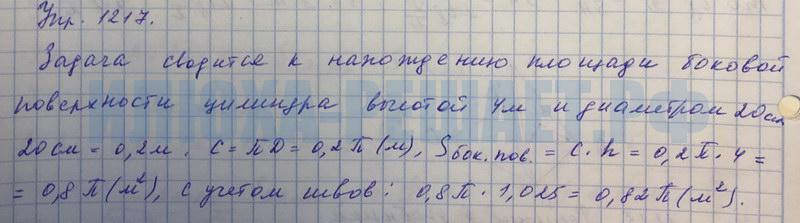 Упр. 1217.
Задача сводится к нахождению площади боковой
поверхности цилиндра высотой 4м и диаметром 20см
20см = 0,2м. C = ПD = 0,2П(м), Sбок.пов. = C·h = 0,2П·4 =
= 0,8П(м²), с учетом швов: 0,8П·1,025 = 0,82П(м²).